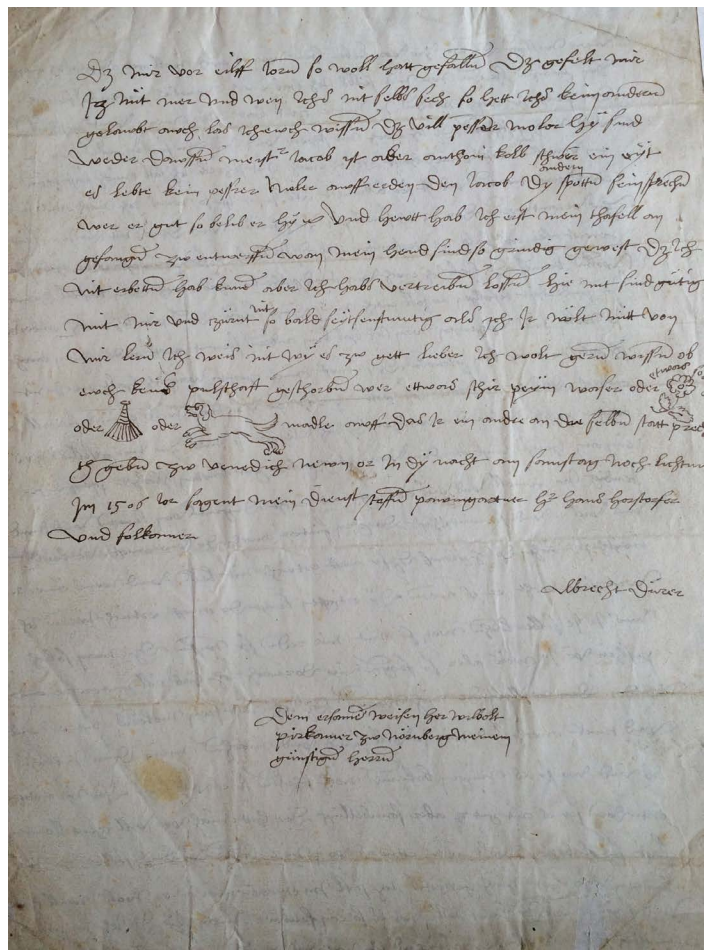 Dz mir vor eilff jorn so woll hatt gefalln Dz gefelt mir
Jtz nüt mer Vnd wen ichs nit selbs sech so hett ichs keim anderen
gelawbt awch las ich ewch wissn Dz vill pesser moler hy sind
weder dawssen meister Jacob ist aber anthoni kolb schwer ein eyt
es lebte kein pesser moler awff erden den Jacob Dy andern spottn sein sprechn
wer er gut so belib er hy Vnd hewtt hab ich erst mein thafell an
gefangn zw entwerffn wan mein hend sind so grindig gewest Dz ich
nit erbettn hab kund aber ich habs vertreibn lossn hie mit sind gütig
mit mir vnd zürnt nit so bald seytsenfftmutig als ich Jr wölt nütt von
mir lern ich weis nit wy es zw gett lieber ich wolt gern wissn ob
ewch keins pulschaft gestorbn wer ettwas schir peym waser oder ettwas
oder oder madle awff das Jr ein andre an die selbn statt prech
th gebn zw venedich newn or In dy nacht am samstag noch lichtm
Jm 1506 jor sagent mein dienst steffn pawmgartner her hans horstorfer
vnd folkamer
Albrecht Dürer
Dem ersamen weisen her wilbolt
pirkamer zw Nörnberg meinem
günstign herrn